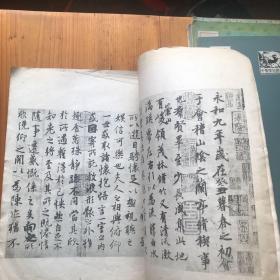 永和九年歲在癸丑暮春之初
于會稽山陰之蘭亭脩稧事
也羣賢畢至少長咸集此地
有崇山峻領茂林脩竹又有清流激
湍暎帶左右引
所以遊目騁懷足以極視聽之
娛信可樂也夫人之相與俯仰
一世或取諸懷抱悟言一室之內
或因寄所託放浪形骸之外雖
趣舍萬殊靜躁不同當其欣
於所遇蹔得於己怏然自足不
知老之將至及其所之既惓情
隨事遷感慨係之矣向之所
欣俛仰之閒以為陳迹猶不